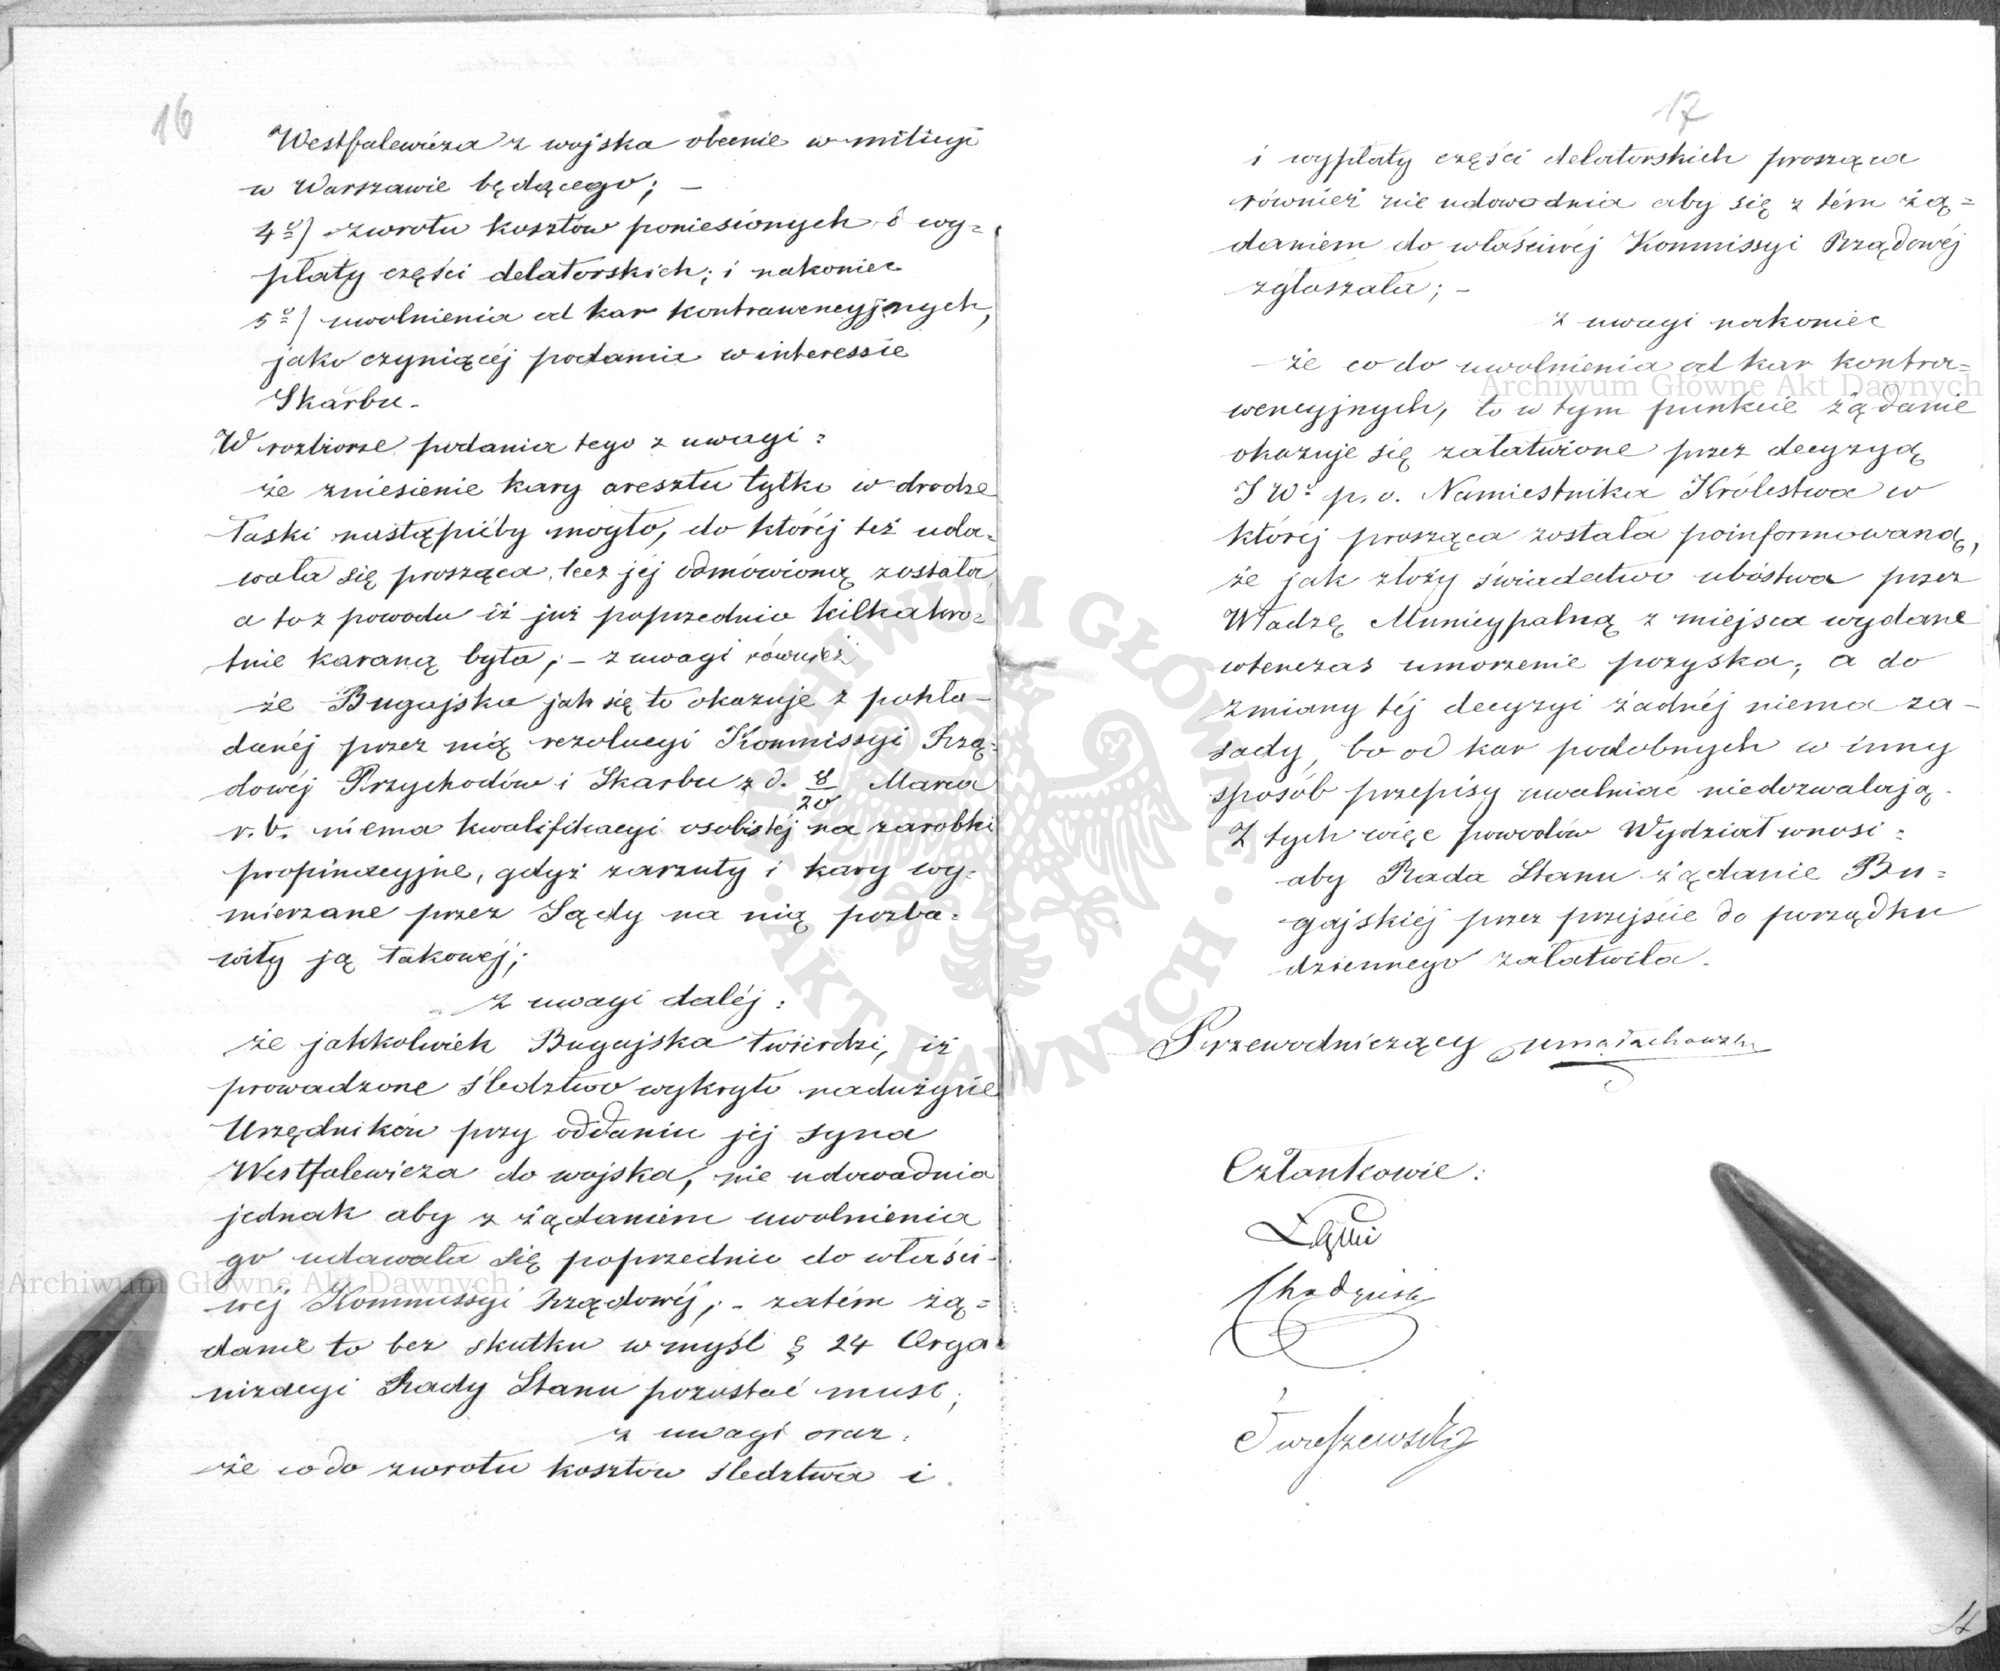 16
Westfalewicza z wojska obecnie w milicyi
w Warszawie będącego; –
4º) zwrotu kosztów poniesionych i wy=
płaty części delatorskich; i nakoniec
5º) uwolnienia od kar kontrawencyjnych,
jako czyniącéj podanie w interessie
Skarbu.
W rozbiorze podania tego z uwagi:
że zniesienie kary aresztu tylko w drodze
łaski nastąpićby mogło, do któréj też uda=
wała się prosząca, lecz jéj odmówioną została
a to z powodu iż już poprzednio kilkakro=
tnie karaną była; – z uwagi również
że Bugajska jak się to okazuje z pokła=
danéj przez nią rezolucyi Kommissyi Rzą=
dowéj Przychodów i Skarbu z d. 8/20 Marca
r. b. niema kwalifikacyi osobistéj na zarobki
propinacyjne, gdyż zarzuty i kary wy=
mierzane przez Sądy na nią pozba=
wiły ją takowéj;
z uwagi daléj:
że jakkolwiek Bugajska twierdzi, iż
prowadzone śledztwo wykryło nadużycie
Urzędników przy oddaniu jéj syna
Westfalewicza do wojska, nie udowadnia
jednak aby z żądaniem uwolnienia
go udawała się poprzednio do właści=
wéj Kommissyi Rządowéj; – zatém żą=
danie to bez skutku w myśl § 24 Orga=
nizacyi Rady Stanu pozostać musi;
z uwagi oraz:
że co do zwrotu kosztów śledztwa i
17
i wypłaty części delatorskich prosząca
również nie udowadnia aby się z tém żą=
daniem do właściwéj Kommissyi Rządowéj
zgłaszała; –
z uwagi nakoniec
że co do uwolnienia od kar kontra=
wencyjnych, to w tym punkcie żądanie
okazuje się załatwione przez decyzyą
JWº p. o. Namiestnika Królestwa w
któréj prosząca została poinformowaną,
że jak złoży świadectwo ubóstwa przez
Władzę Municypalną z miejsca wydane
wtenczas umorzenie pozyska; a do
zmiany téj decyzyi żadnéj niema za=
sady, bo od kar podobnych w inny
sposób przepisy uwalniać niedozwalają.
Z tych więc powodów Wydział wnosi:
aby Rada Stanu żądanie Bu=
gajskiéj przez przejście do porządku
dziennego załatwiła.
Przewodniczący Małachowski
Członkowie:
Archiwum Główne Akt Dawnych
Archiwum Główne Akt Dawnych
ARCHIWUM GŁÓWNE · AKT DAWNYCH ·